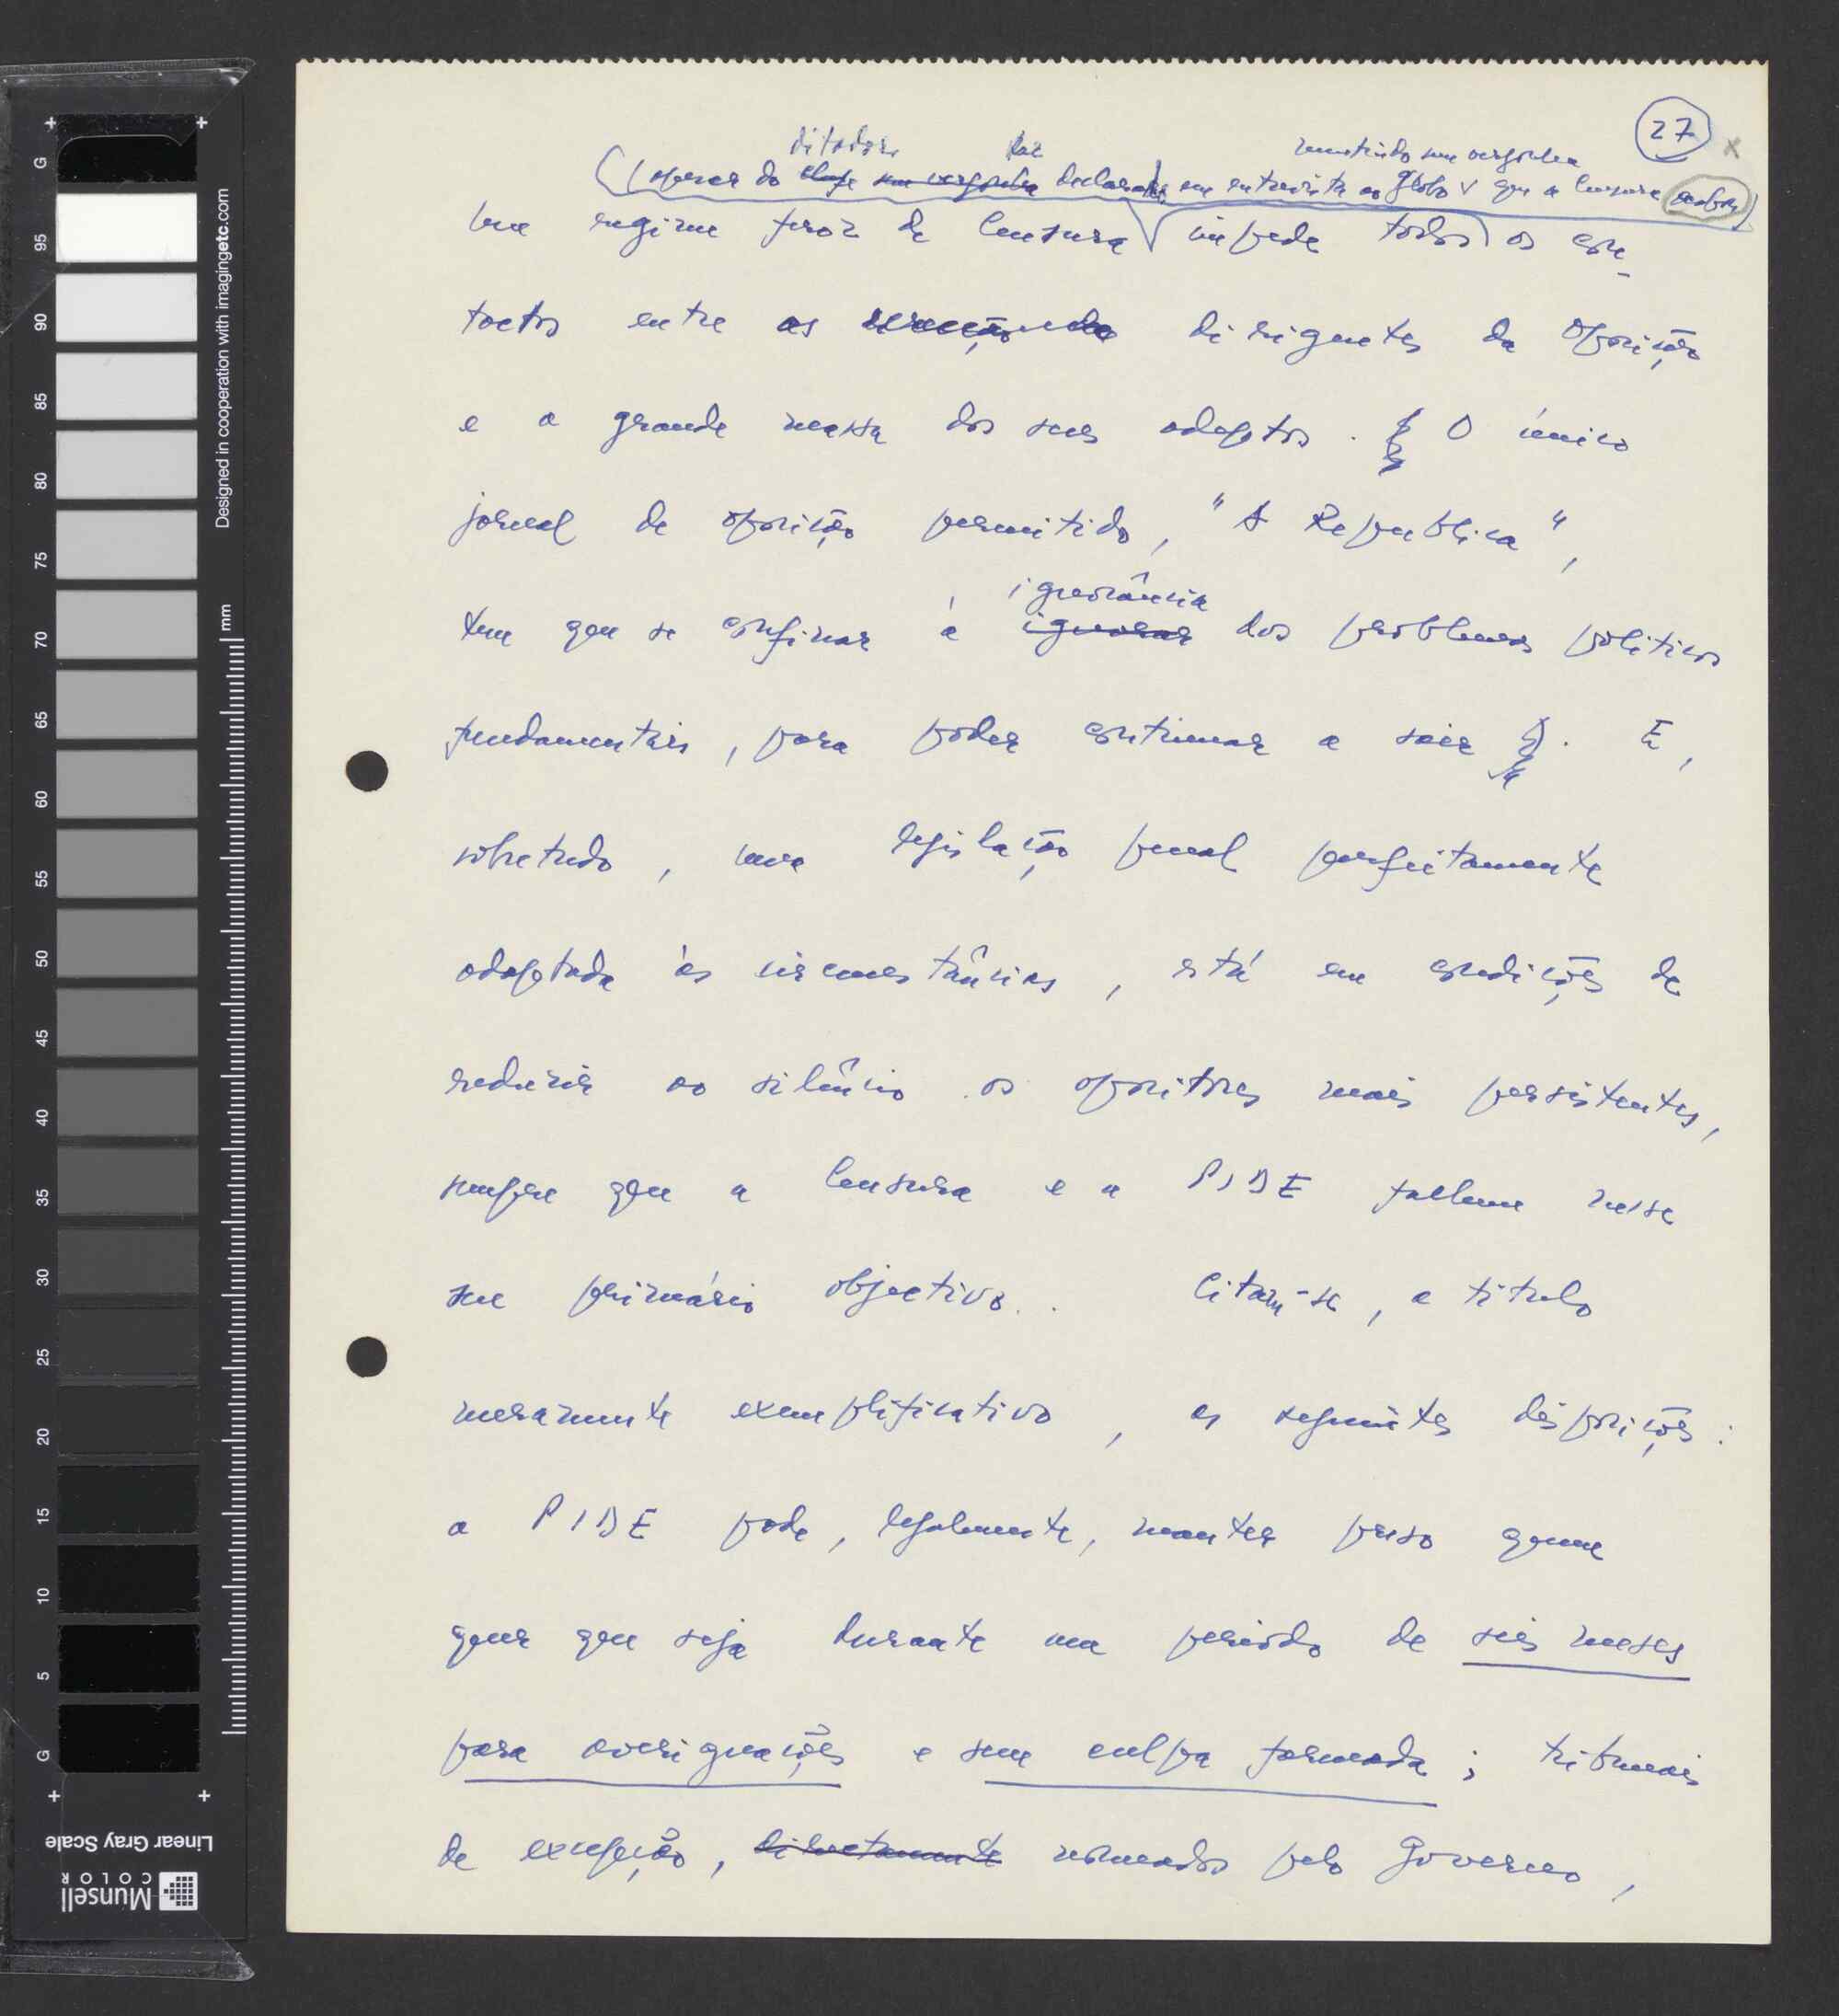 27
ditador
mentindo sem vergonha
(apesar do chefe sem vergonha declarar em entrevista ao Globo que a Censura acabou)
Um regime feroz de Censura impede todos os con-
tactos entre os dirigentes da oposição
e a grande massa dos seus adeptos. O único
jornal de oposição permitido, "A Republica",
ignorância
tem que se confinar à ignorar dos problemas politicos
fundamentais, para poder continuar a sair. E,
sobretudo, uma legislação penal perfeitamente
adaptada às circunstâncias, está em condições de
reduzir ao silêncio os opositores mais persistentes,
sempre que a Censura e a PIDE falhem nesse
seu primário objectivo. Citam-se, a titulo
meramente exemplificativo, as seguintes disposições:
a PIDE pode, legalmente, manter preso quem
quer que seja durante um periodo de seis meses
para averiguações e sem culpa formada; tribunais
de excepção, directamente nomeados pelo Governo,
Designed in cooperation with imagingetc.com
mm
G 95 90 85 80 75 70 65 60 55 50 45 40 35 30 25 20 15 10 5 G
Linear Gray Scale
Munsell
COLOR